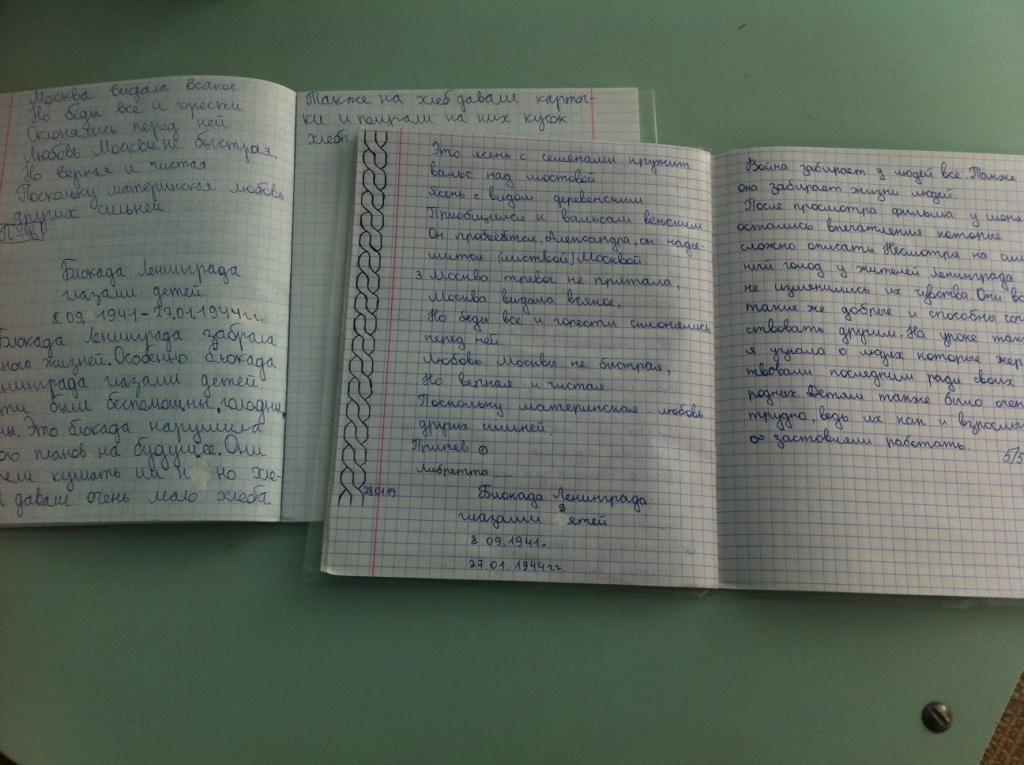 Москва видала всякое
Но беды все и горести
Склонялись перед ней
Любовь Москвы не быстрая,
Но верная и чистая
Поскольку материнская любовь
других сильней
Блокада Ленинграда
глазами детей
8.09. 1941-27.01.1944гг.
Блокада Ленинграда забрала
много жизней. Особенно блокада
нинграда глазами детей
ти были беспомощны, голодны,
ны. Это блокада нарушила
планов на будущее. Они
кушать им н но хле-
давали очень мало хлеба.
Также на хлеб давали карточ-
ки и получали на них кусок
хлеба
Это ясень с семенами кружит
вальс над мостовой
Ясень с видом деревенским
Приобщился к вальсам венским
Он пробьётся, Александра, он нады-
шится (листвой) Москвой
3 Москва тревог не прятала,
Москва видала всякое,
Но беды все и горести склонялись
перед ней.
Любовь Москвы не быстрая,
Но верная и чистая
Поскольку материнская любовь
других сильней.
Припев.
Либретто ....
28.01.19.
Блокада Ленинграда
глазами детей
8.09.1941-
27.01.1944гг.
Война забирает у людей всё. Также
она забирает жизни людей
После просмотра фильма у меня
остались впечатления которые
сложно описать. Несмотря на силь
ний голод у жителей Ленинграда
не изменились их чувства. Они вс
такие же добрые и способны соч
ствовать другим. На уроке так
я узнала о людях которые жер
твовали последним ради своих
родных. Детям также было очен
трудно, ведь их как и взрослы
заставляли работать.
5/5